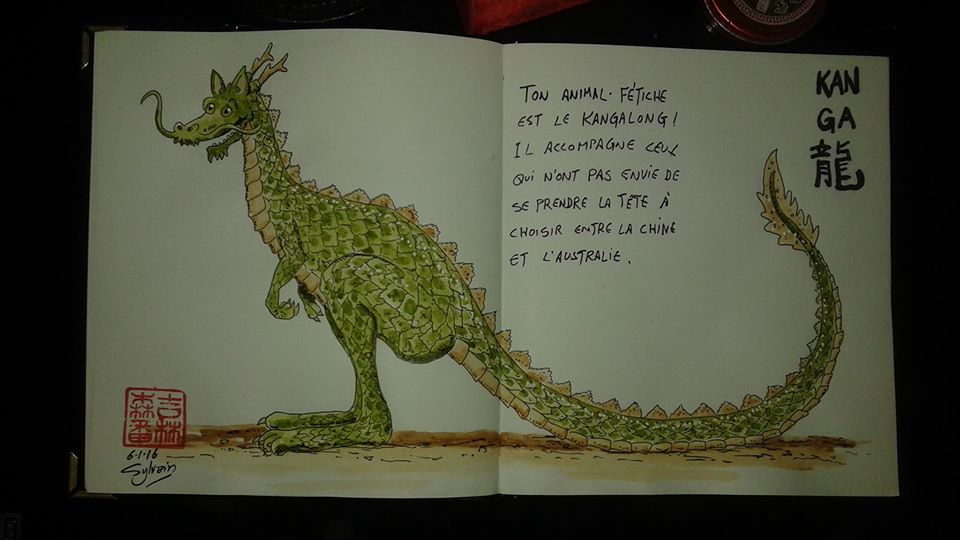 TON ANIMAL-FÉTICHE
EST LE KANGALONG!
IL ACCOMPAGNE CEUX
QUI N'ONT PAS ENVIE DE
SE PRENDRE LA TÊTE À
CHOISIR ENTRE LA CHINE
ET L'AUSTRALIE.
KAN
GA
龍
6.1.16
Sylvain